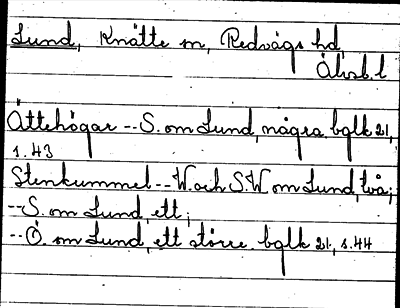 Lund, Knätte sn, Redvägs hd
Älvsb. l
Ättehögar -- S. om Lund, några. bglk 21,
s. 43
Stenkummel -- W. och S.W. om Lund, två;
-- S. om Lund, ett;
-- Ö. om Lund, ett större. bglk 21, s. 44